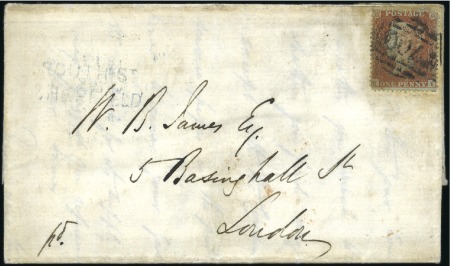 POSTAGE
ONE PENNY
SOUTH ST
W. B. James Esq.
5 Basinghall St
London
pd.